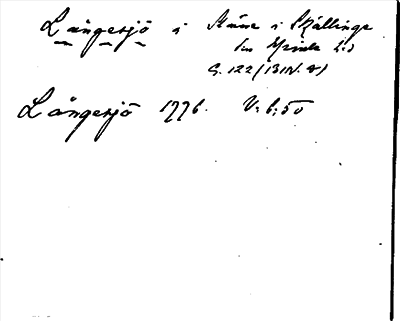 Långesjö i Stäne i Skällinge
sn Himle hd
G. 122 (131N. 8)
Långesjö 1776. V: 6: 50